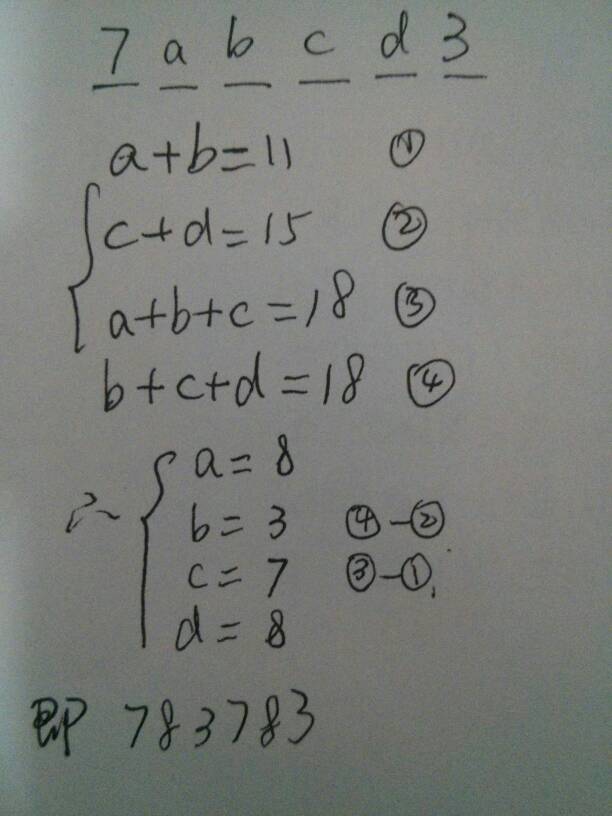 7 a b c d 3
a+b=11 ①
c+d=15 ②
a+b+c=18 ③
b+c+d=18 ④
∴ a=8
b=3 ④-②
c=7 ③-①
d=8
即 783783